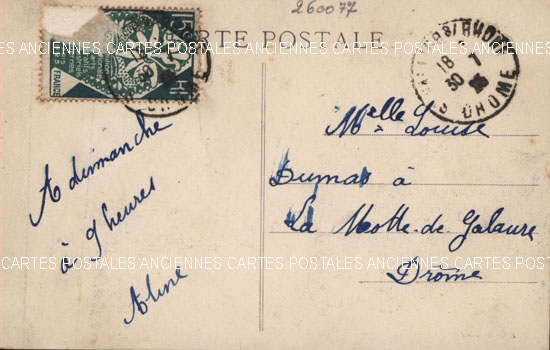 260077
CARTE POSTALE
ANCIENNES CARTES POSTALES ANCIENNES CARTES POSTALES ANCIENNES CARTES
18 - 1
30
DROME
15
FRANCE
Melle Louise
Dumas à
La Motte-de-Galaure
Drôme
A dimanche
à 9 heures
Aline
CARTES POSTALES ANCIENNES CARTES POSTALES ANCIENNES CARTES POSTALES